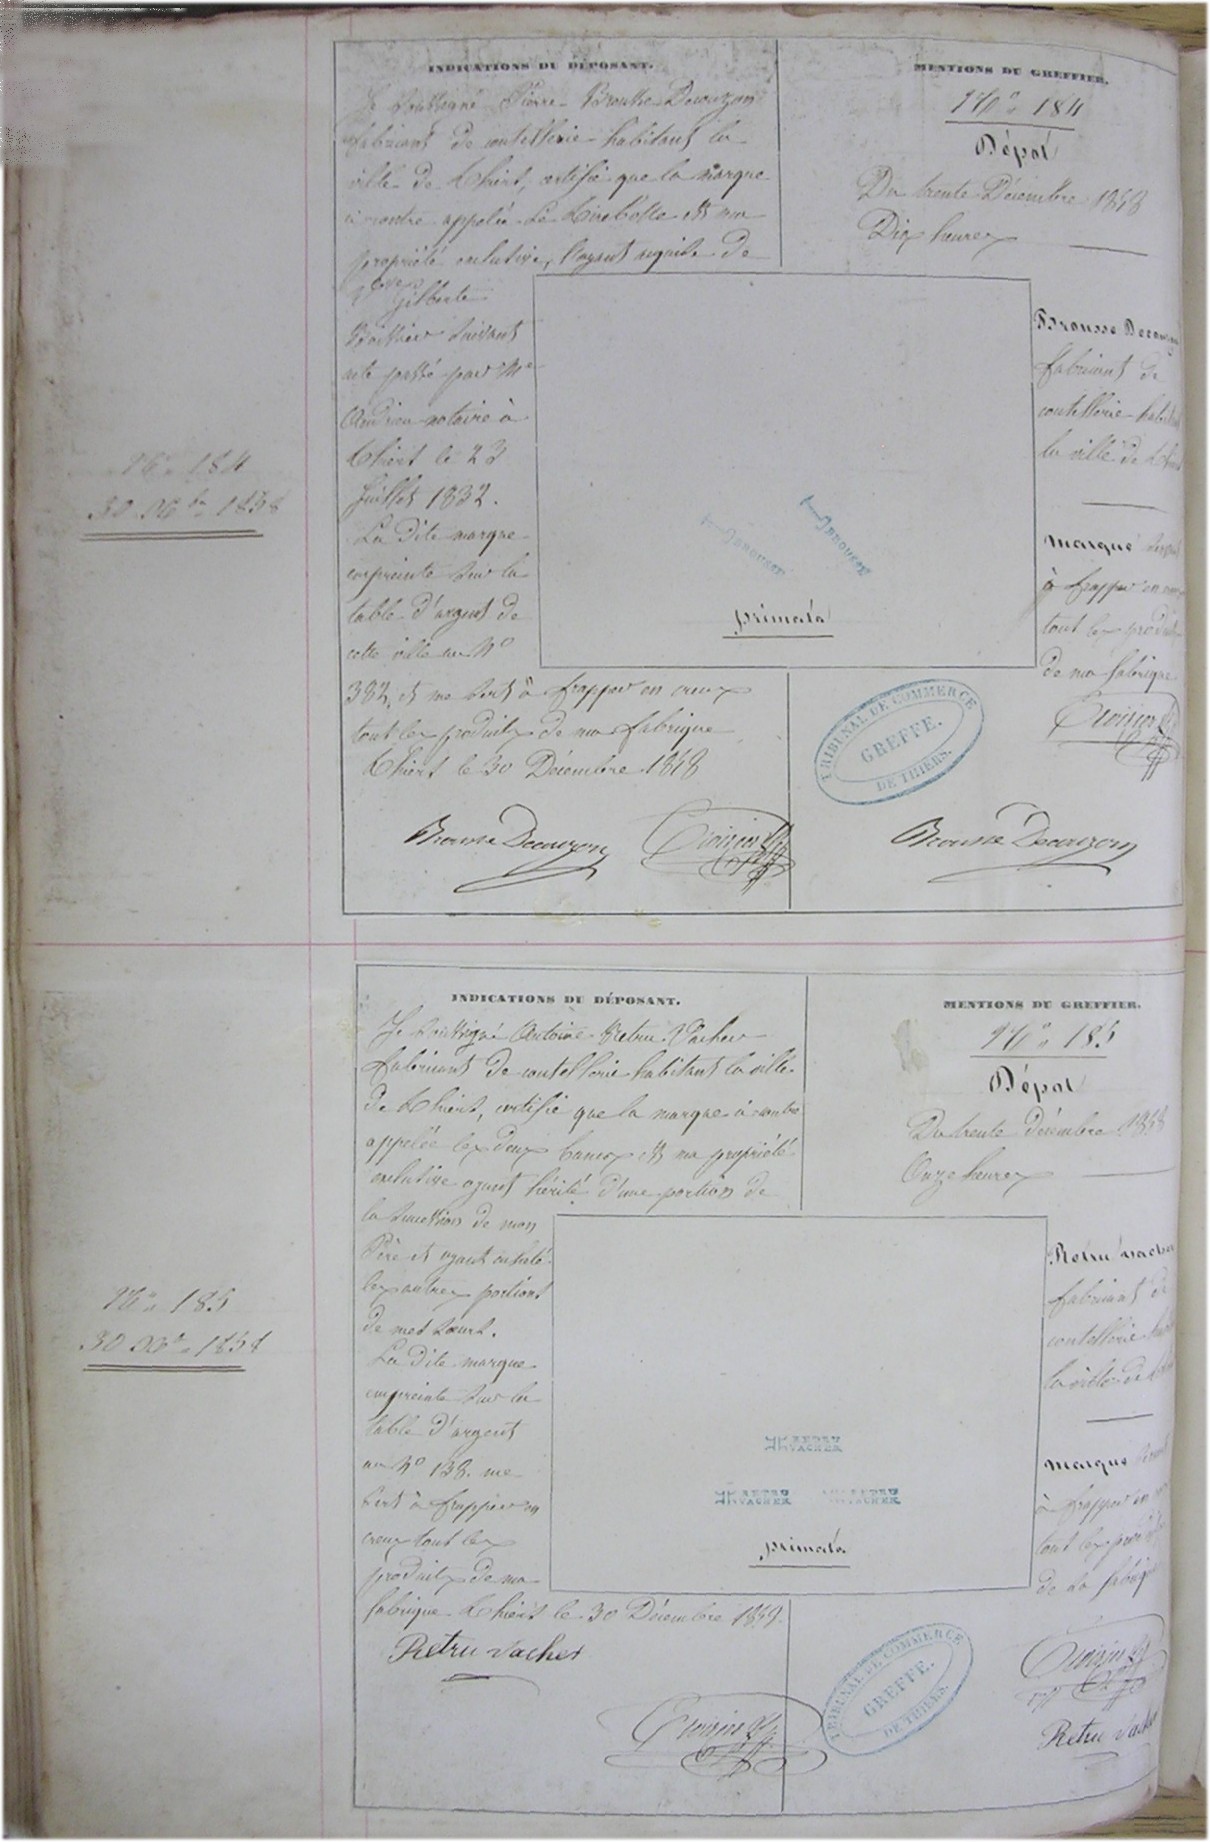 INDICATIONS DU DÉPOSANT.
Je soussigné Pierre Brousse Decouzon
fabricant de coutellerie habitant la
ville de Thiers, certifie que la marque
à contre appelée Le Tirebotte est ma
propriété exclusive, l'ayant acquise de
Gilberte
suivant
acte passé par Me
notaire à
Thiers le 23
Juillet 1832.
La dite marque
empreinte sur la
table d'argent de
cette ville au No
382, et me sert à frapper en creux
tous les produits de ma fabrique
Thiers le 30 Décembre 1858
Brousse Decouzon
MENTIONS DU GREFFIER.
No 184
Dépôt
Du trente Décembre 1858
Dix heures
Brousse Decouzon
fabricant de
coutellerie
la ville de
marque
à frapper en
tous les produits
de ma fabrique
BROUSSE
BROUSSE
primata
TRIBUNAL DE COMMERCE
GREFFE.
DE THIERS.
Brousse Decouzon
No 184
30 Xbre 1858
INDICATIONS DU DÉPOSANT.
Je soussigné Antoine Retru Vacher
fabricant de coutellerie habitant la ville
de Thiers, certifie que la marque à contre
appelée les deux bancs est ma propriété
exclusive ayant hérité d'une portion de
la succession de mon
Père et ayant acheté
les autres portions
de mes sœurs.
La dite marque
empreinte sur la
table d'argent
au No 138. me
sert à frapper en
creux tous les
produits de ma
fabrique Thiers le 30 Décembre 1858.
Retru vacher
MENTIONS DU GREFFIER.
No 185
Dépôt
Du trente décembre 1858
Onze heures
Retru vacher
fabricant de
coutellerie
la ville de
marque
à frapper en
tous les produits
de sa fabrique
RETRU
VACHER
RETRU
VACHER
RETRU
VACHER
primata
TRIBUNAL DE COMMERCE
GREFFE.
DE THIERS.
Retru vacher
No 185
30 Xbre 1858